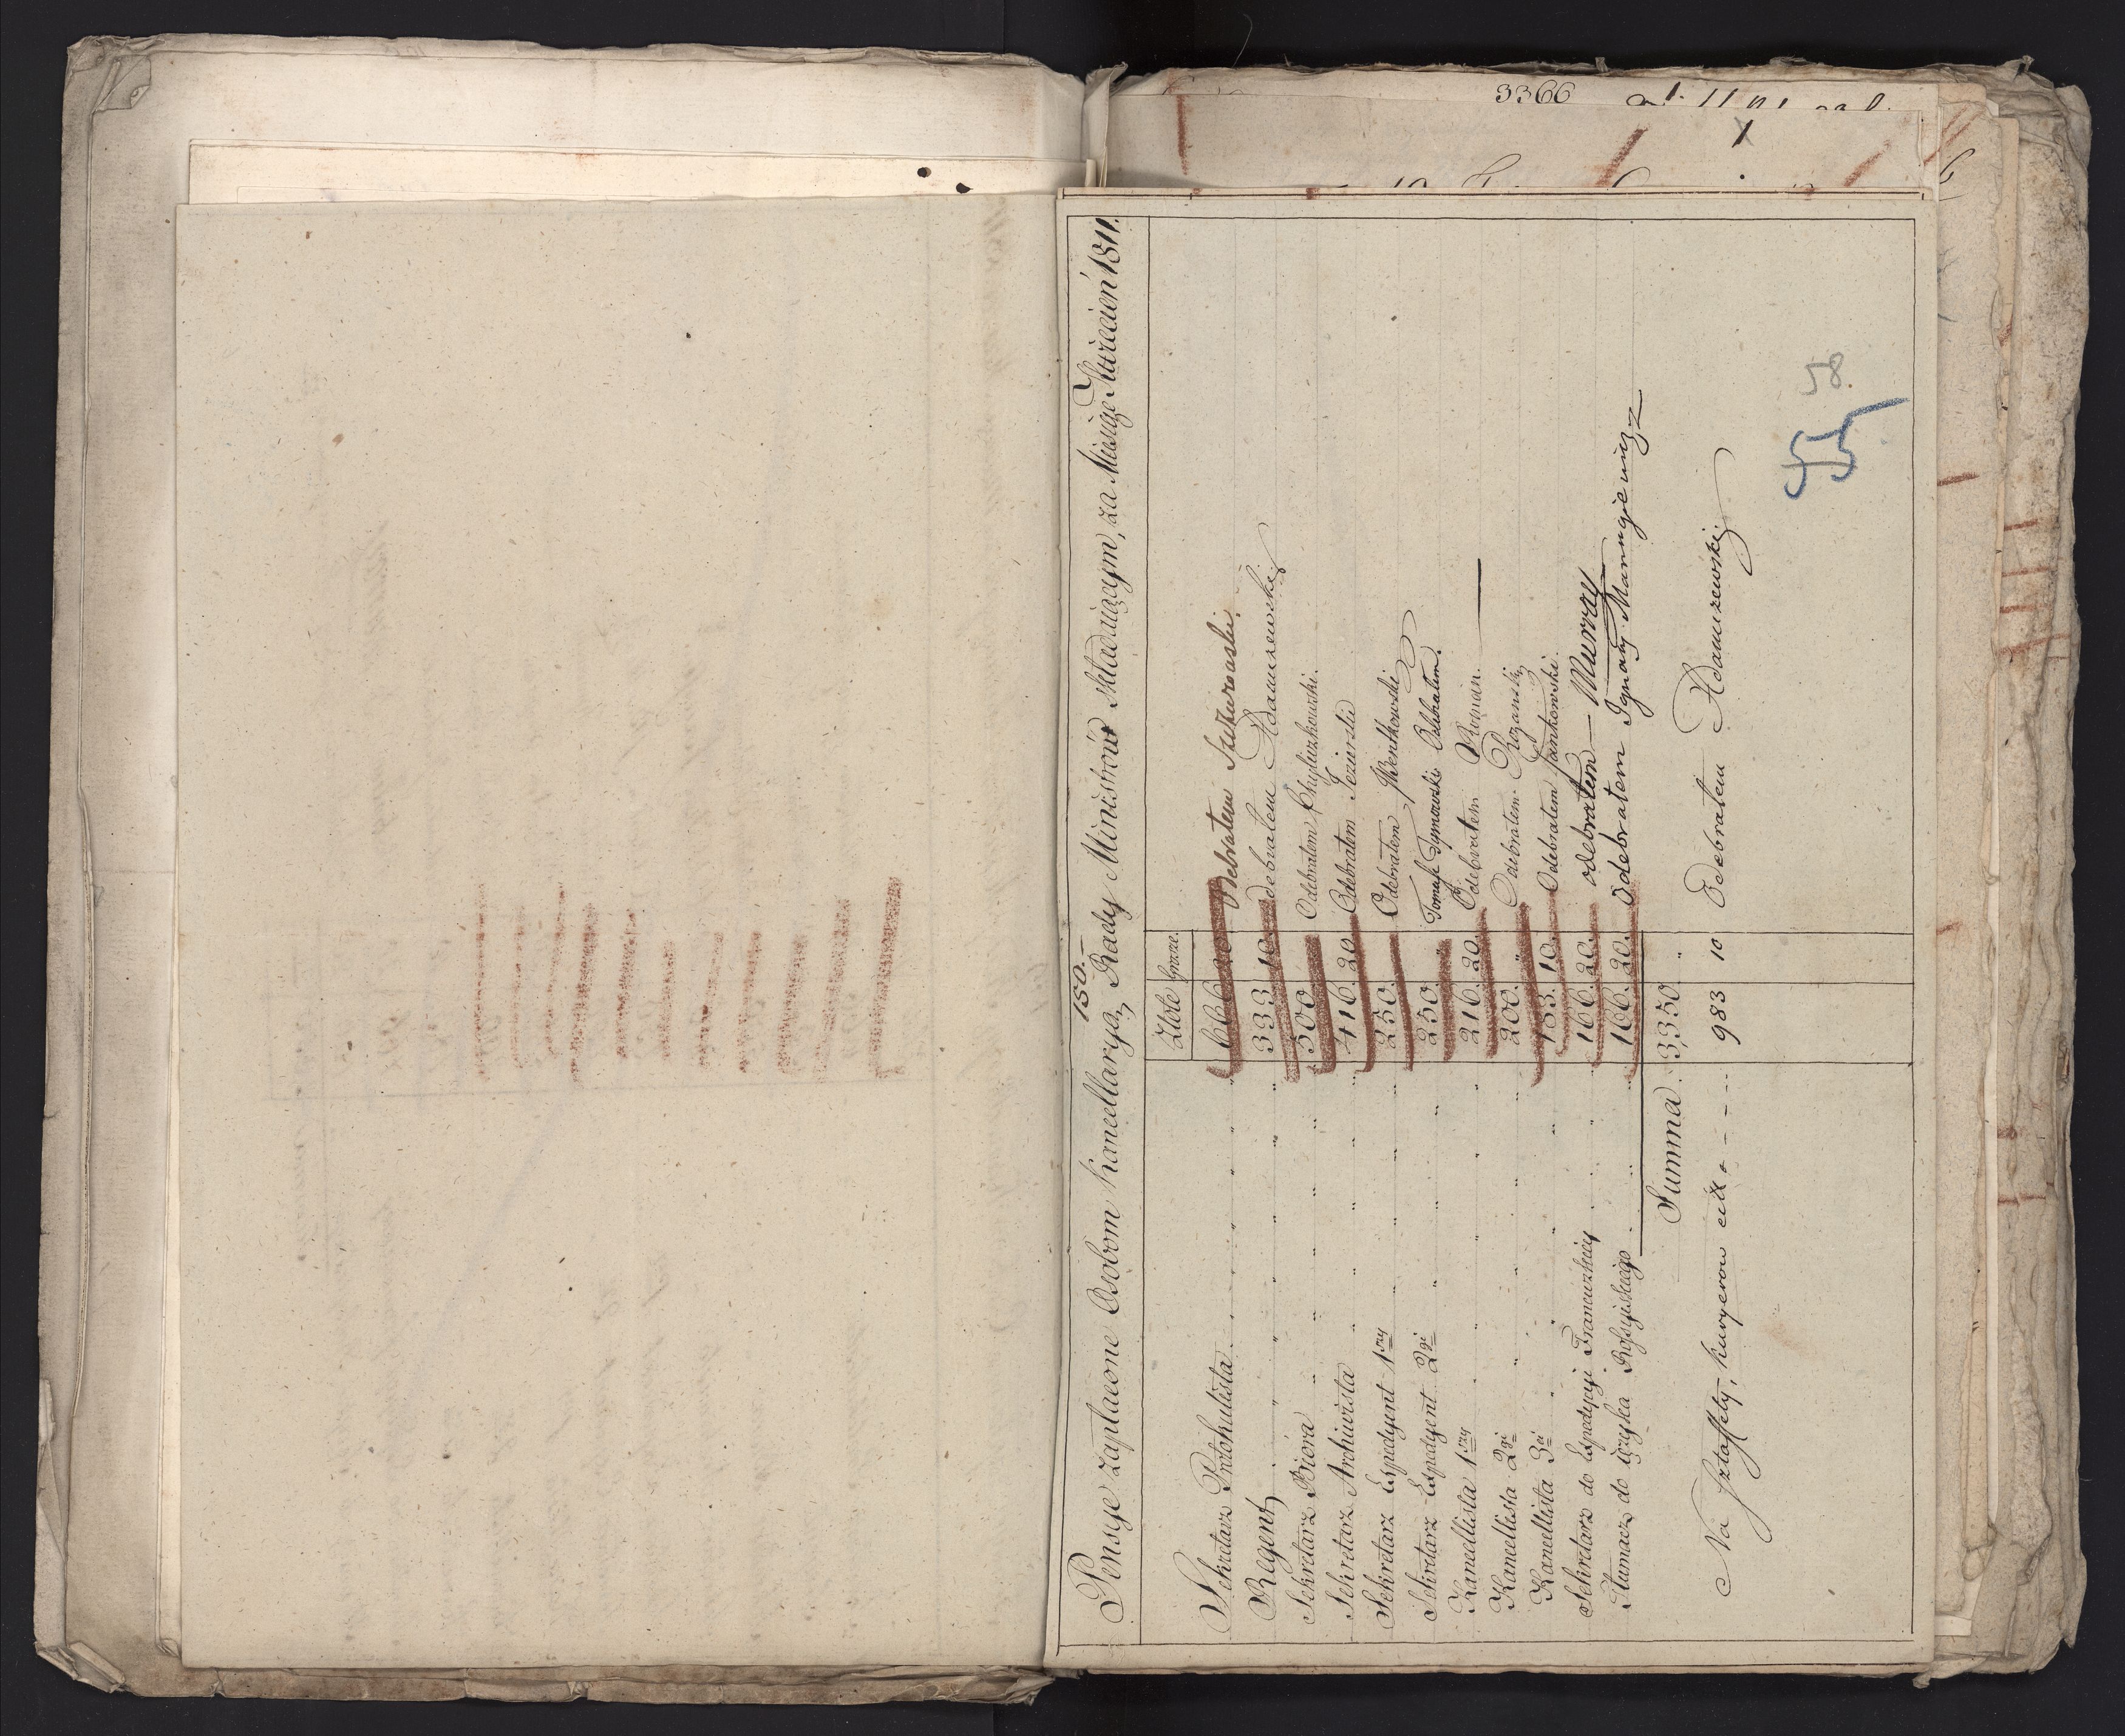 3366
150.—
Pensye zapłacone Osobom Kancellaryą Rady Ministrów składaiącym, za Miesiąc Kwiecień 1811.
Złote grosze.
Sekretarz Protokulista 666 20 Odebrałem
Regent 333 10 Odebrałem Adamszewski
Sekretarz Biora 500 Odebrałem
Sekretarz Archiwista 416. 20 Odebrałem Jezierski
Sekretarz Expedyent 1szy 250. Odebrałem Bentkowski
Sekretarz Expedyent 2gi 250 " Tomasz Tymowski Odebrałem.
Kancellista 1szy 216. 20. Odebrałem Roman.
Kancellista 2gi 200. " Odebrałem Rozanski
Kancellista 3ci 183. 10. Odebrałem Jankowski.
Sekretarz do Expedycyi Francuzkiey 166. 20. odebrałem — Murray
Tłumacz do ięzyka Rossyiskiego 166. 20. Odebrałem Ignacy Marrugiewicz
Summa 3,350. "
Na sztaffety, kuryerow etc - - - - 983 10 Odebrałem Adamszewski
58
55